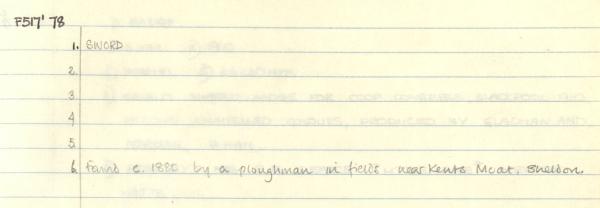 F517' 78
1. SWORD
2.
3
4
5
6. found c. 1880 by a ploughman in fields near Kents Moat, Sheldon.